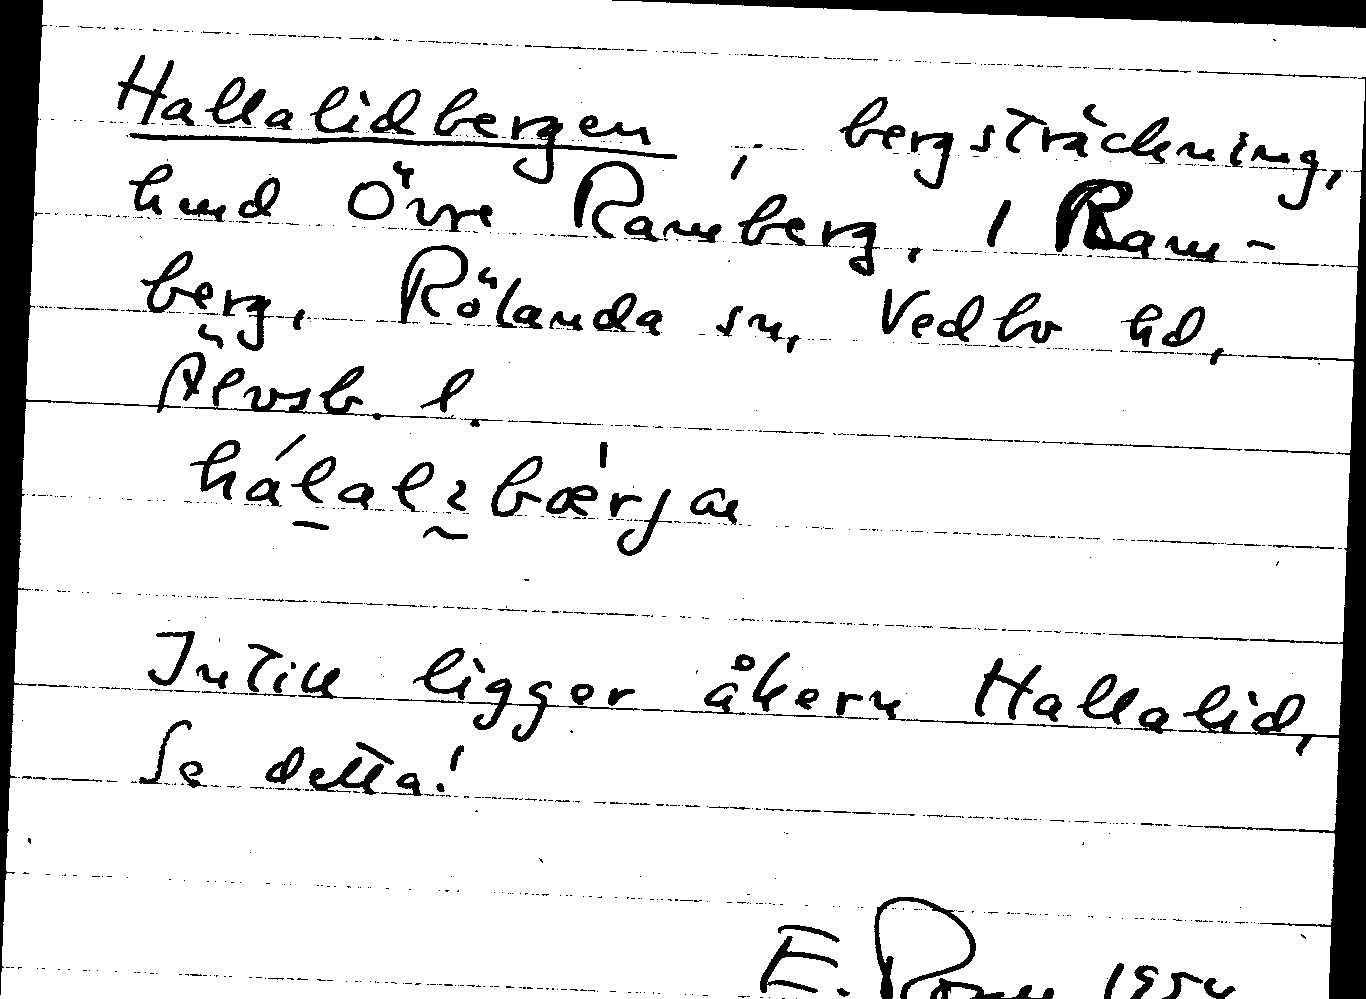 Hallalidbergen, bergsträckning,
hmd Övre Ramberg, 1 Ram-
berg, Rölanda sn, Vedbo hd,
Älvsb. l.
Intill ligger åkern Hallalid,
Se detta!
E. 1954